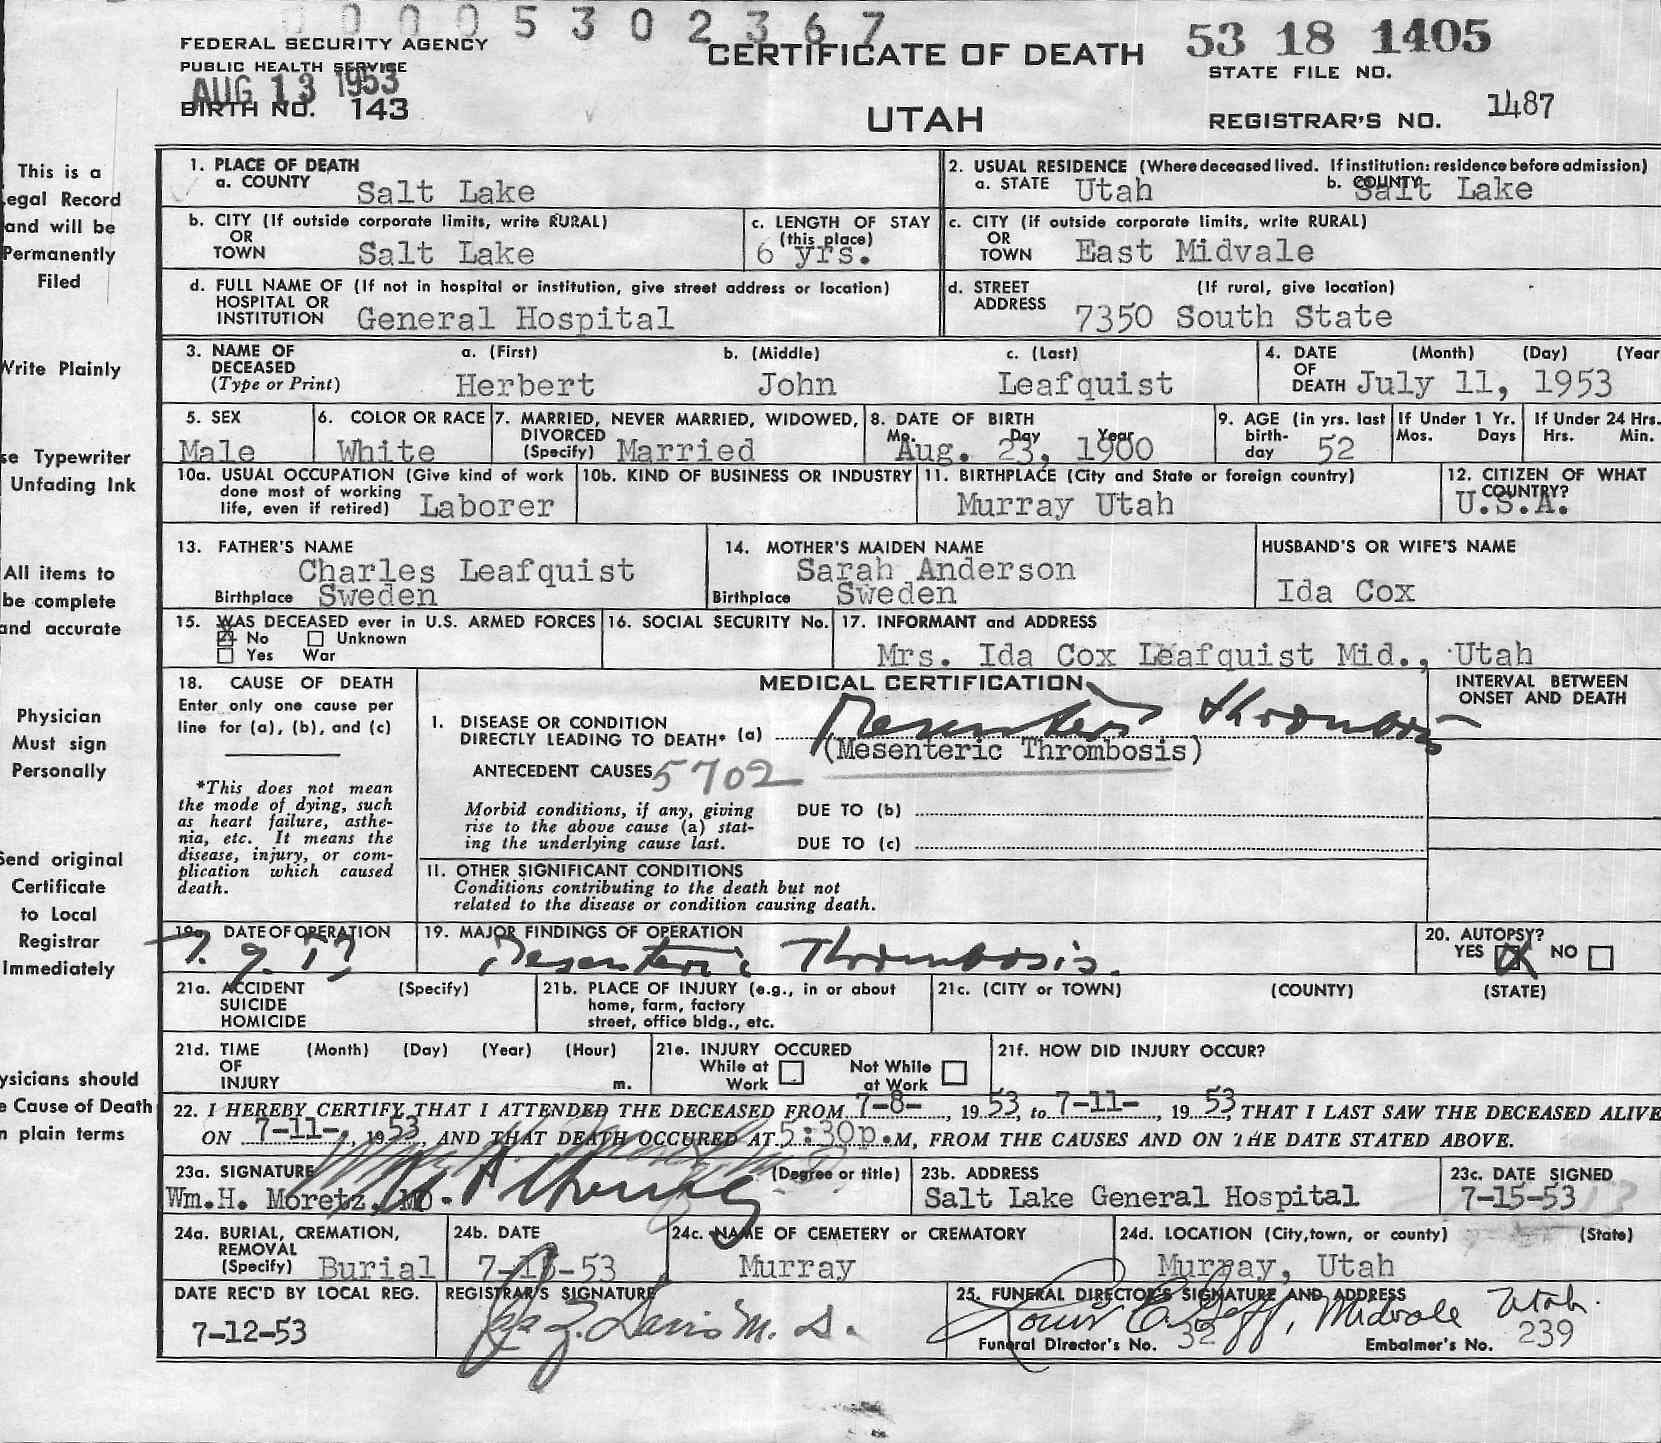 0 0 0 0 5 3 0 2 3 6 7
FEDERAL SECURITY AGENCY
PUBLIC HEALTH SERVICE
AUG 13 1953
BIRTH NO. 143
CERTIFICATE OF DEATH
UTAH
53 18 1405
STATE FILE NO.
REGISTRAR'S NO. 1487
This is a
egal Record
and will be
Permanently
Filed
Write Plainly
se Typewriter
Unfading Ink
All items to
be complete
and accurate
Physician
Must sign
Personally
Send original
Certificate
to Local
Registrar
Immediately
ysicians should
e Cause of Death
n plain terms
1. PLACE OF DEATH
a. COUNTY Salt Lake
2. USUAL RESIDENCE (Where deceased lived. If institution: residence before admission)
a. STATE Utah b. COUNTY Salt Lake
b. CITY (If outside corporate limits, write RURAL)
OR
TOWN Salt Lake
c. LENGTH OF STAY
(this place)
6 yrs.
c. CITY (if outside corporate limits, write RURAL)
OR
TOWN East Midvale
d. FULL NAME OF (If not in hospital or institution, give street address or location)
HOSPITAL OR
INSTITUTION General Hospital
d. STREET (If rural, give location)
ADDRESS 7350 South State
3. NAME OF DECEASED (Type or Print)
a. (First) b. (Middle) c. (Last)
Herbert John Leafquist
4. DATE (Month) (Day) (Year
OF
DEATH July 11, 1953
5. SEX
Male
6. COLOR OR RACE
White
7. MARRIED, NEVER MARRIED, WIDOWED,
DIVORCED
(Specify) Married
8. DATE OF BIRTH
Mo. Day Year
Aug. 23, 1900
9. AGE (in yrs. last
birth-
day 52
If Under 1 Yr.
Mos. Days
If Under 24 Hrs.
Hrs. Min.
10a. USUAL OCCUPATION (Give kind of work
done most of working
life, even if retired) Laborer
10b. KIND OF BUSINESS OR INDUSTRY
11. BIRTHPLACE (City and State or foreign country)
Murray Utah
12. CITIZEN OF WHAT
COUNTRY?
U.S.A.
13. FATHER'S NAME
Charles Leafquist
Birthplace Sweden
14. MOTHER'S MAIDEN NAME
Sarah Anderson
Birthplace Sweden
HUSBAND'S OR WIFE'S NAME
Ida Cox
15. WAS DECEASED ever in U.S. ARMED FORCES
No Unknown
Yes War
16. SOCIAL SECURITY No.
17. INFORMANT and ADDRESS
Mrs. Ida Cox Leafquist Mid., Utah
18. CAUSE OF DEATH
Enter only one cause per
line for (a), (b), and (c)
*This does not mean
the mode of dying, such
as heart failure, asthe-
nia, etc. It means the
disease, injury, or com-
plication which caused
death.
MEDICAL CERTIFICATION
INTERVAL BETWEEN
ONSET AND DEATH
I. DISEASE OR CONDITION
DIRECTLY LEADING TO DEATH* (a) Mesenteric Thrombosis
(Mesenteric Thrombosis)
ANTECEDENT CAUSES 5702
Morbid conditions, if any, giving
rise to the above cause (a) stat-
ing the underlying cause last.
DUE TO (b)
DUE TO (c)
II. OTHER SIGNIFICANT CONDITIONS
Conditions contributing to the death but not
related to the disease or condition causing death.
19a. DATE OF OPERATION
7. 9. 53
19. MAJOR FINDINGS OF OPERATION
Mesenteric Thrombosis.
20. AUTOPSY?
YES X NO
21a. ACCIDENT (Specify)
SUICIDE
HOMICIDE
21b. PLACE OF INJURY (e.g., in or about
home, farm, factory
street, office bldg., etc.
21c. (CITY or TOWN) (COUNTY) (STATE)
21d. TIME (Month) (Day) (Year) (Hour)
OF
INJURY m.
21e. INJURY OCCURED
While at Work Not While at Work
21f. HOW DID INJURY OCCUR?
22. I HEREBY CERTIFY THAT I ATTENDED THE DECEASED FROM 7-8-, 19 53, to 7-11-, 19 53, THAT I LAST SAW THE DECEASED ALIVE
ON 7-11-, 1953, AND THAT DEATH OCCURED AT 5:30p.M, FROM THE CAUSES AND ON THE DATE STATED ABOVE.
23a. SIGNATURE (Degree or title)
Wm.H. Moretz, MD.
23b. ADDRESS
Salt Lake General Hospital
23c. DATE SIGNED
7-15-53
24a. BURIAL, CREMATION,
REMOVAL
(Specify) Burial
24b. DATE
7-15-53
24c. NAME OF CEMETERY OR CREMATORY
Murray
24d. LOCATION (City, town, or county) (State)
Murray, Utah
DATE REC'D BY LOCAL REG.
7-12-53
REGISTRAR'S SIGNATURE
Davis M. D.
25. FUNERAL DIRECTOR'S SIGNATURE AND ADDRESS
Midvale Utah.
Funeral Director's No. 32 Embalmer's No. 239